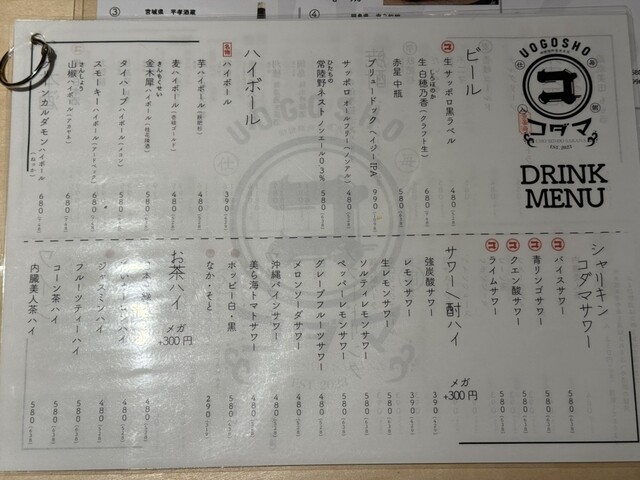 ③ 宮城県 平孝酒蔵
④
UOGOSHO
コ
コダマ
EST. 2023
DRINK
MENU
ビール
コ 生 サッポロ黒ラベル 480
生 白穂乃香(クラフト生) 680
しろほのか
赤星 中瓶 580
ブリュードッグ ヘイジーIPA 990
サッポロ オールフリー(ノンアル) 480
常陸野ネスト ノンエール0.3% 580
ひたちの
ハイボール
名物 ハイボール 390
芋ハイボール 480
麦ハイボール 480
金木犀ハイボール(桂花陳酒) 580
きんもくせい
タイハーブハイボール(メコン) 580
スモーキーハイボール(アードベッグ) 680
山椒ハイボール 680
さんしょう
カルダモンハイボール 680
シャリキン
コダマサワー
コ バイスサワー 580
コ 青リンゴサワー 580
コ クエン酸サワー 580
コ ライムサワー 580
サワー/酎ハイ メガ+300円
強炭酸サワー 390
レモンサワー 390
生レモンサワー 580
ソルティレモンサワー 580
ペッパーレモンサワー 580
グレープフルーツサワー 480
メロンソーダサワー 480
沖縄パインサワー 480
美ら海トマトサワー 480
ホッピー白・黒 580
なか・そと 290
お茶ハイ メガ+300円
480
480
ジャスミンハイ 480
フルーツティーハイ 580
コーン茶ハイ 580
内臓美人茶ハイ 580